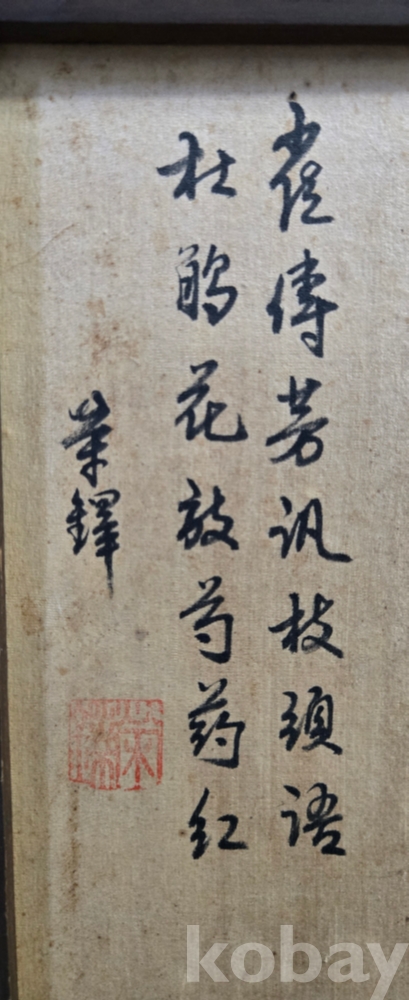 雀傳芳訊枝頭語
杜鵑花放芍药红
荣鐸
kobay